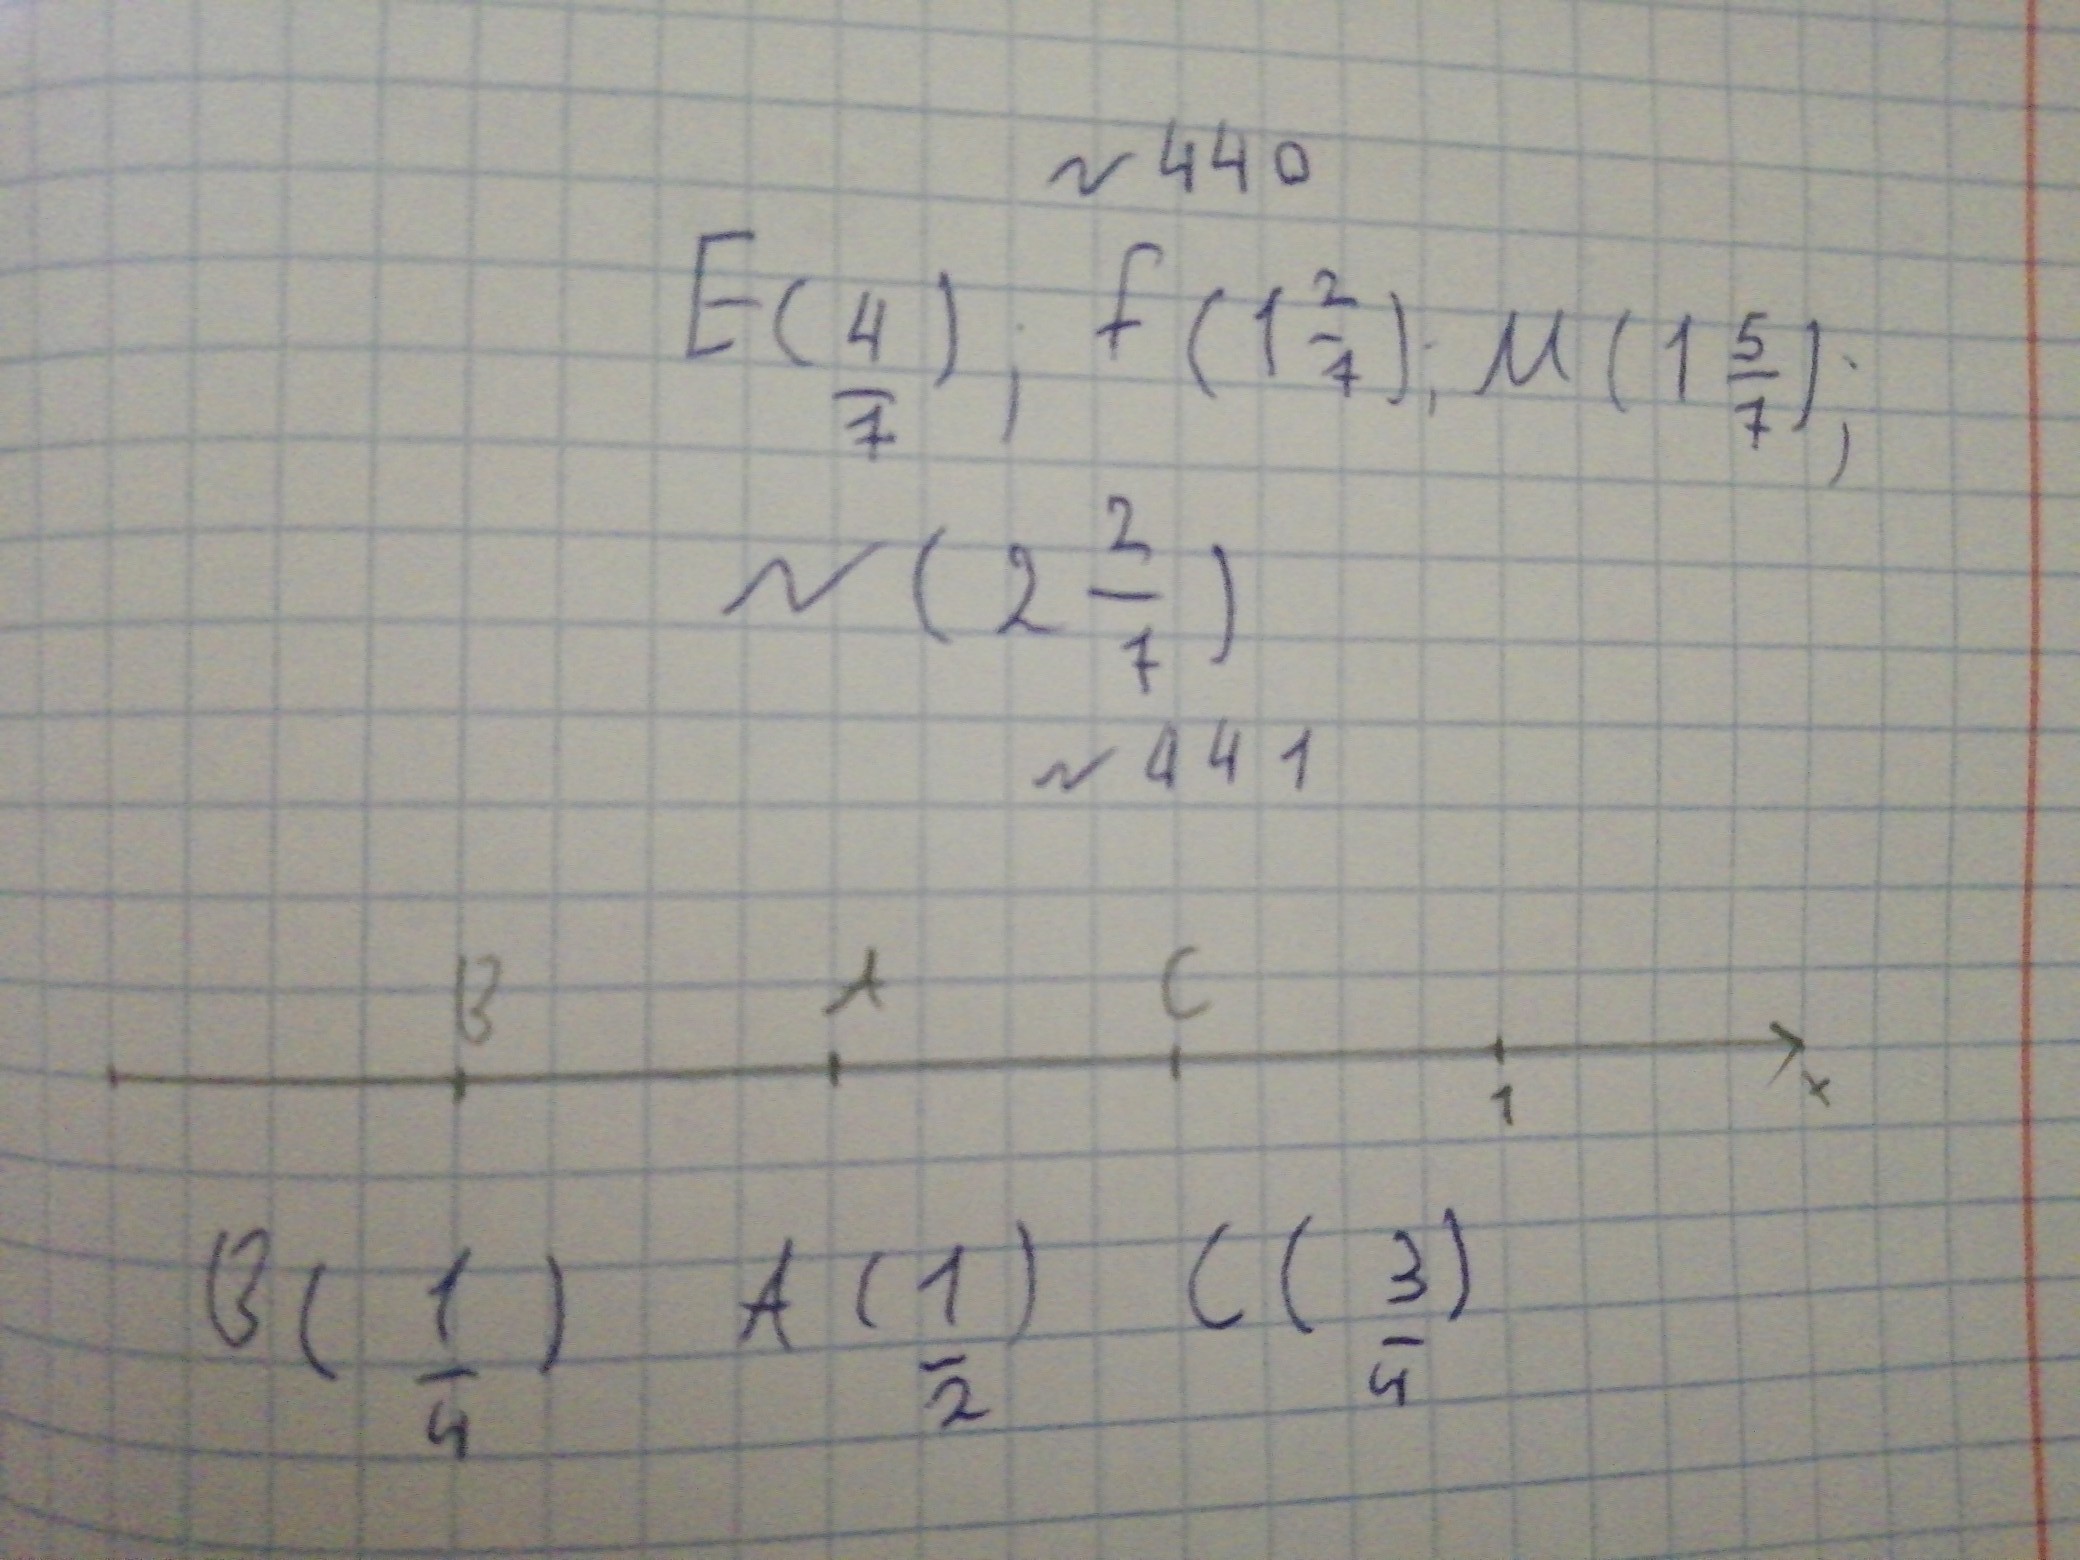 ~ 440
E(4/7); f(1 2/7); M(1 5/7);
N(2 2/7)
~ 441
B A C
1 x
B(1/4) A(1/2) C(3/4)